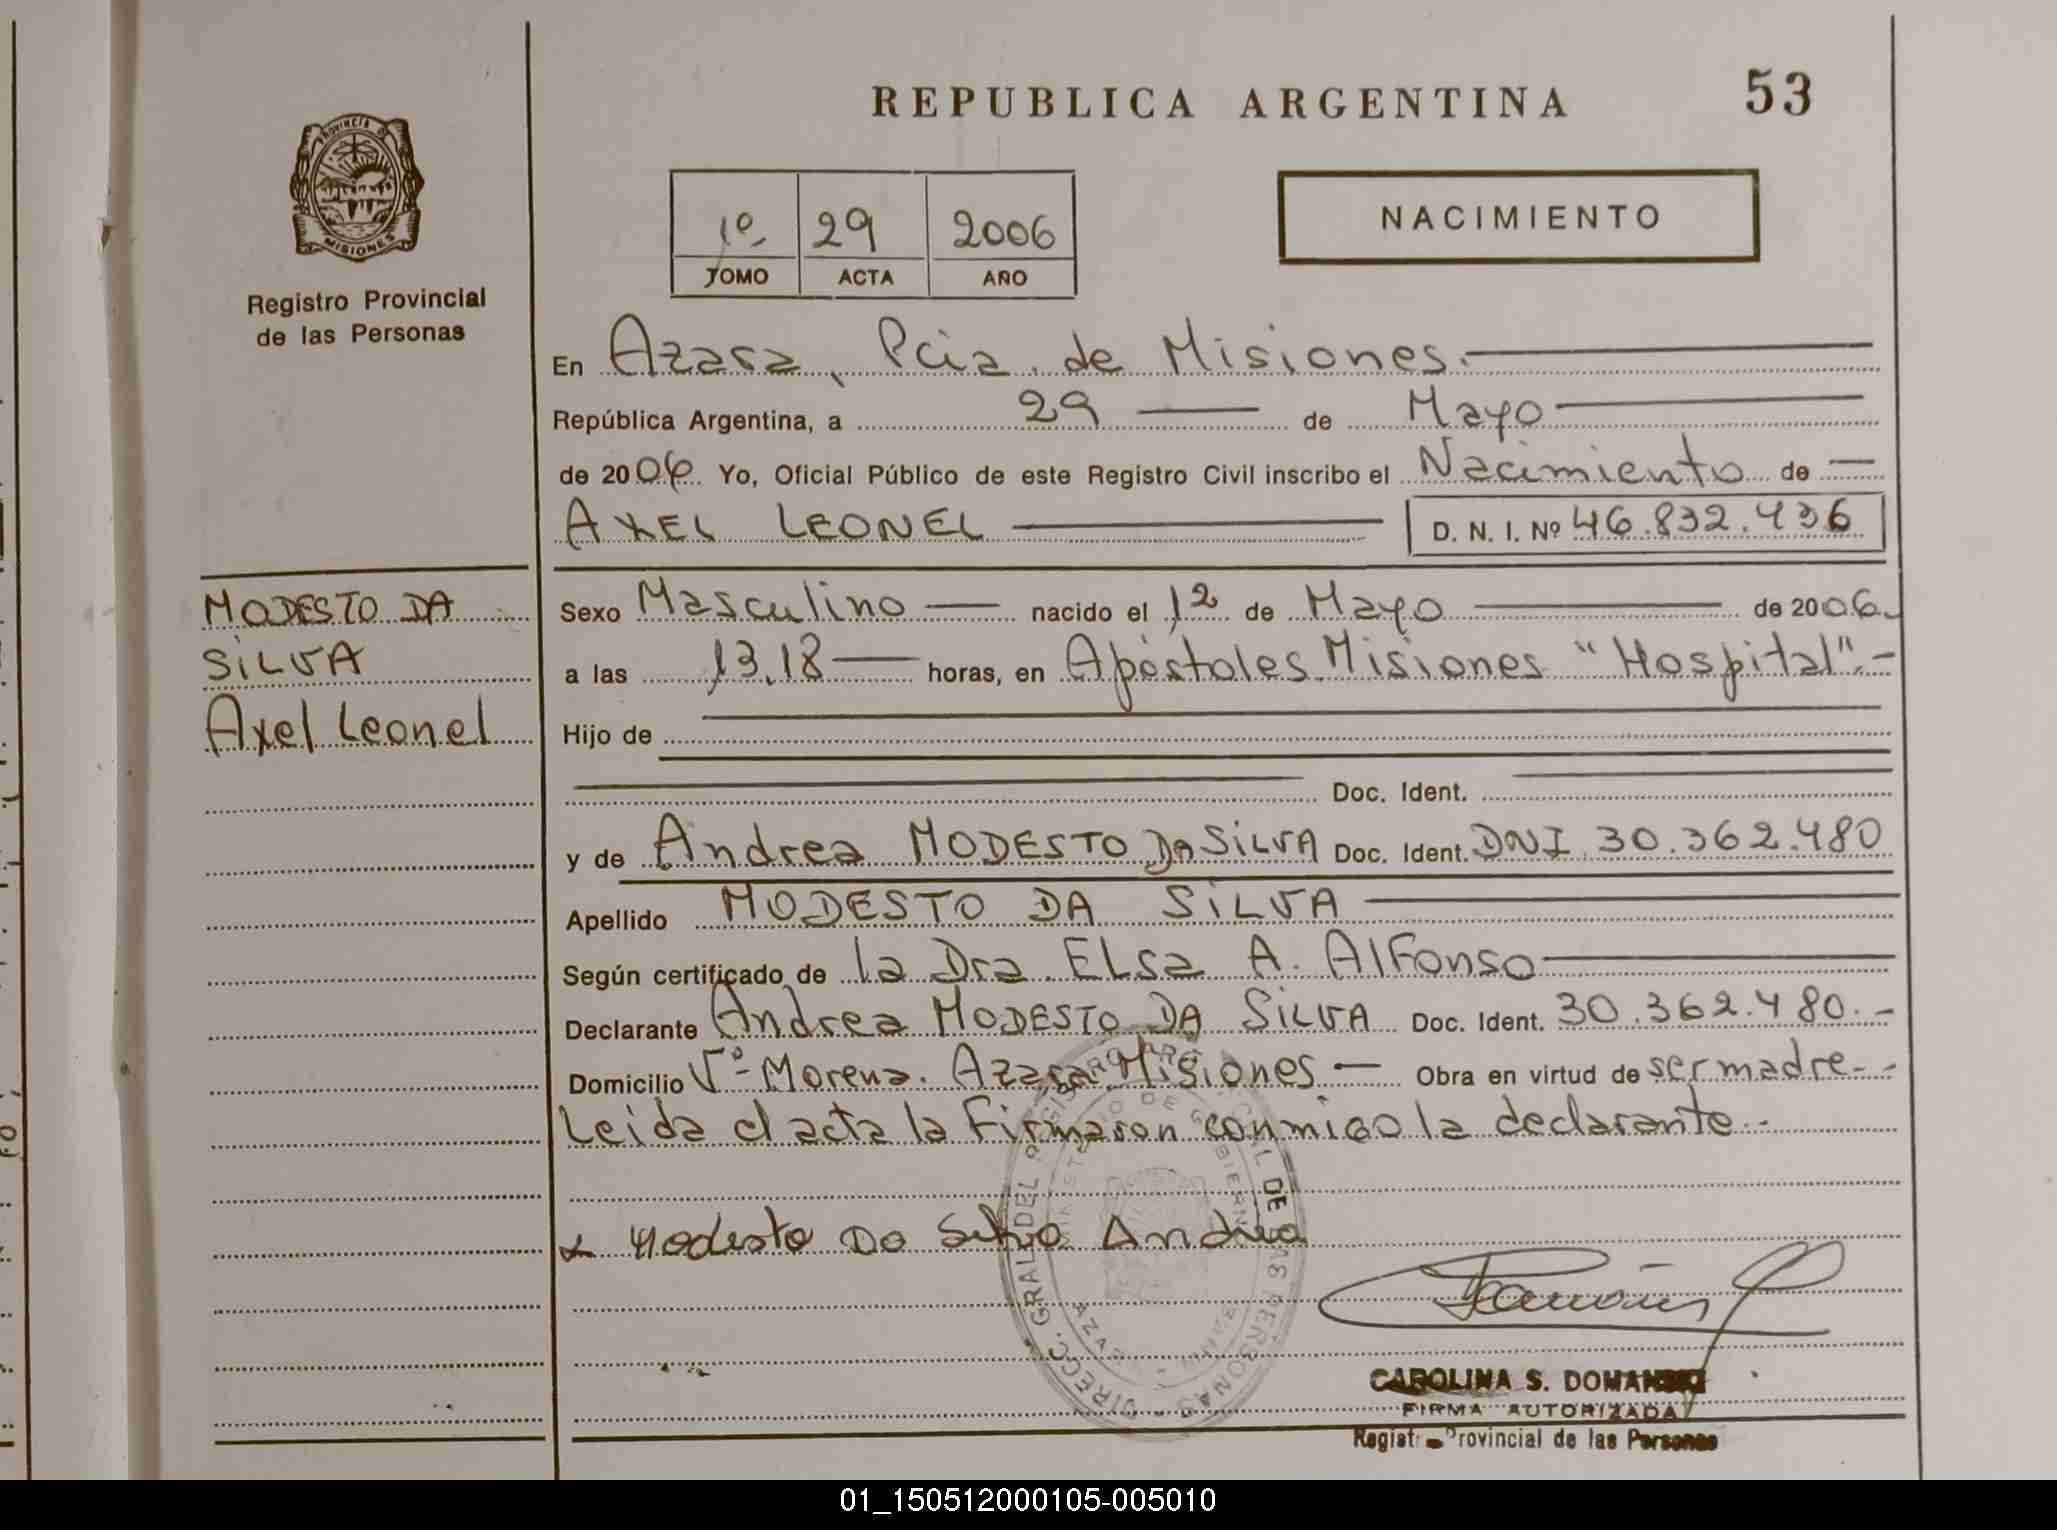 REPUBLICA ARGENTINA
53
PROVINCIA DE
MISIONES
Registro Provincial
de las Personas
1º 29 2006
TOMO ACTA AÑO
NACIMIENTO
En Azara, Pcia. de Misiones.
República Argentina, a 29 de Mayo
de 2006. Yo, Oficial Público de este Registro Civil inscribo el Nacimiento de
AXEL LEONEL D. N. I. Nº 46.832.436
MODESTO DA
SILVA
Axel Leonel
Sexo Masculino nacido el 12 de Mayo de 2006.
a las 13,18 horas, en Apóstoles. Misiones "Hospital".-
Hijo de
Doc. Ident.
y de Andrea MODESTO DA SILVA Doc. Ident. DNI 30.362.480
Apellido MODESTO DA SILVA
Según certificado de la Dra. ELsa A. Alfonso
Declarante Andrea MODESTO DA SILVA Doc. Ident. 30.362.480.-
Domicilio Vº Morena. Azara. Misiones Obra en virtud de ser madre.-
Leida el acta la Firmaron conmigo la declarante.-
x Modesto Da Silva Andrea
DIRECC. GRAL DEL REGISTRO CIVIL DE LAS PERSONAS
MINISTERIO DE GOBIERNO
AZARA
CAROLINA S. DOMANSKI
FIRMA AUTORIZADA
Registro Provincial de las Personas
01_150512000105-005010